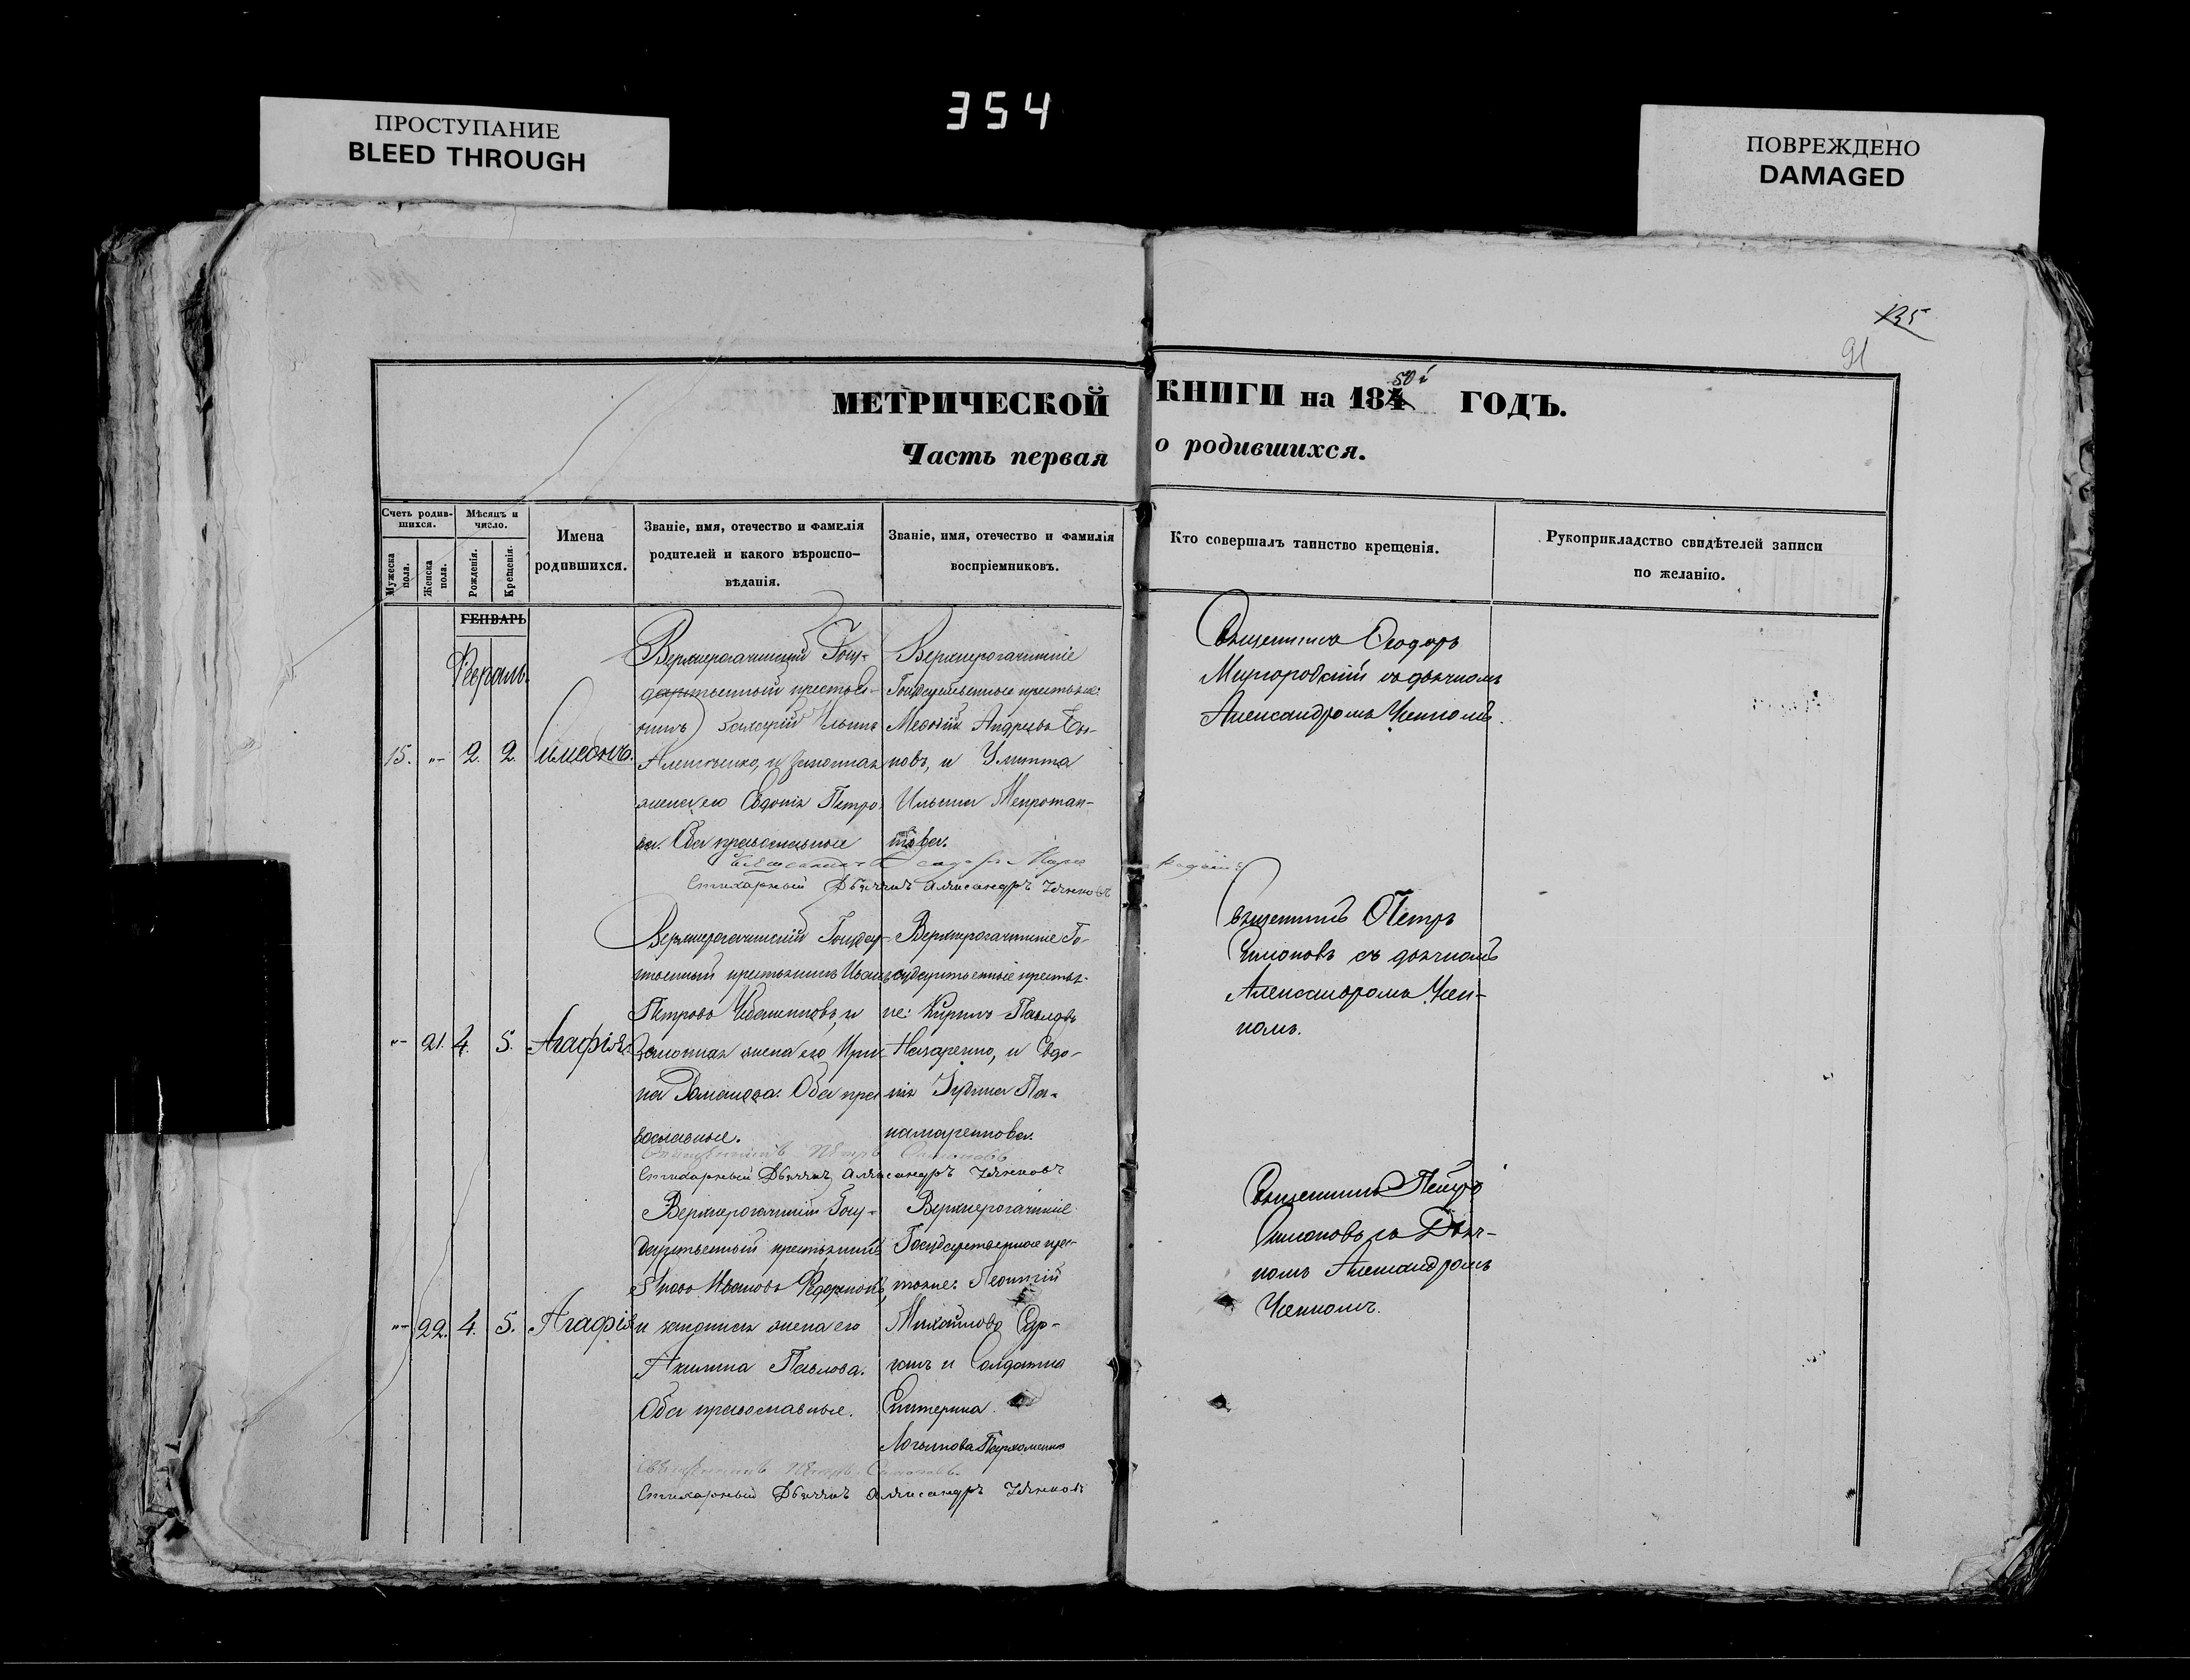 354
ПРОСТУПАНИЕ
BLEED THROUGH
ПОВРЕЖДЕНО
DAMAGED
135
91
МЕТРИЧЕСКОЙ КНИГИ на 184 50й ГОДЪ.
Часть первая о родившихся.
Счетъ родив-
шихся.
Мужеска пола.
Женска пола.
Мѣсяцъ и
число.
Рожденія.
Крещенія.
Имена
родившихся.
Званіе, имя, отечество и фамилія
родителей и какого вѣроиспо-
вѣданія.
Званіе, имя, отечество и фамилія
воспріемниковъ.
Кто совершалъ таинство крещенія.
Рукоприкладство свидѣтелей записи
по желанію.
ГЕНВАРЬ
Февраль
15. „- 2. 2. Симеонъ.
Верхнерогачикскій Госу-
дарственный крестья-
нинъ Захарій Ильинъ
и законная
жена его Евдокія Петро
ва. Оба православные
Верхнерогачикскіе
Государственные крестьяне
Андреевъ
новъ, и Улитта
Ильина
Священникъ Ѳеодоръ
Миргородскій съ дьячкомъ
Александромъ
Стихарный Дьячекъ Александръ
„- 21. 4. 5. Агафія.
Верхнерогачикскій Государ-
ственный крестьянинъ Иванъ
Петровъ и
законная жена его Ири-
на Романова. Оба пра
вославные.
Верхнерогачикскіе Го-
сударственные крестья-
не: Кирилъ Павловъ
Назаренко, и Евдо-
кія
Священникъ Петръ
Симоновъ съ дьячкомъ
Александромъ
Священникъ Петръ Симоновъ
Стихарный Дьячекъ Александръ
„- 22. 4. 5. Агафія
Верхнерогачикскій Госу-
дарственный крестьянинъ
Ивановъ
и законная жена его
Акилина Павлова.
Оба православные.
Верхнерогачикскіе
Государственные кре-
стьяне: Леонтій
Михайловъ
и Солдатка
Екатерина
Логвинова Пархоменко
Священникъ Петръ
Симоновъ съ Дьяч-
комъ Александромъ
Священникъ Петръ Симоновъ
Стихарный Дьячекъ Александръ